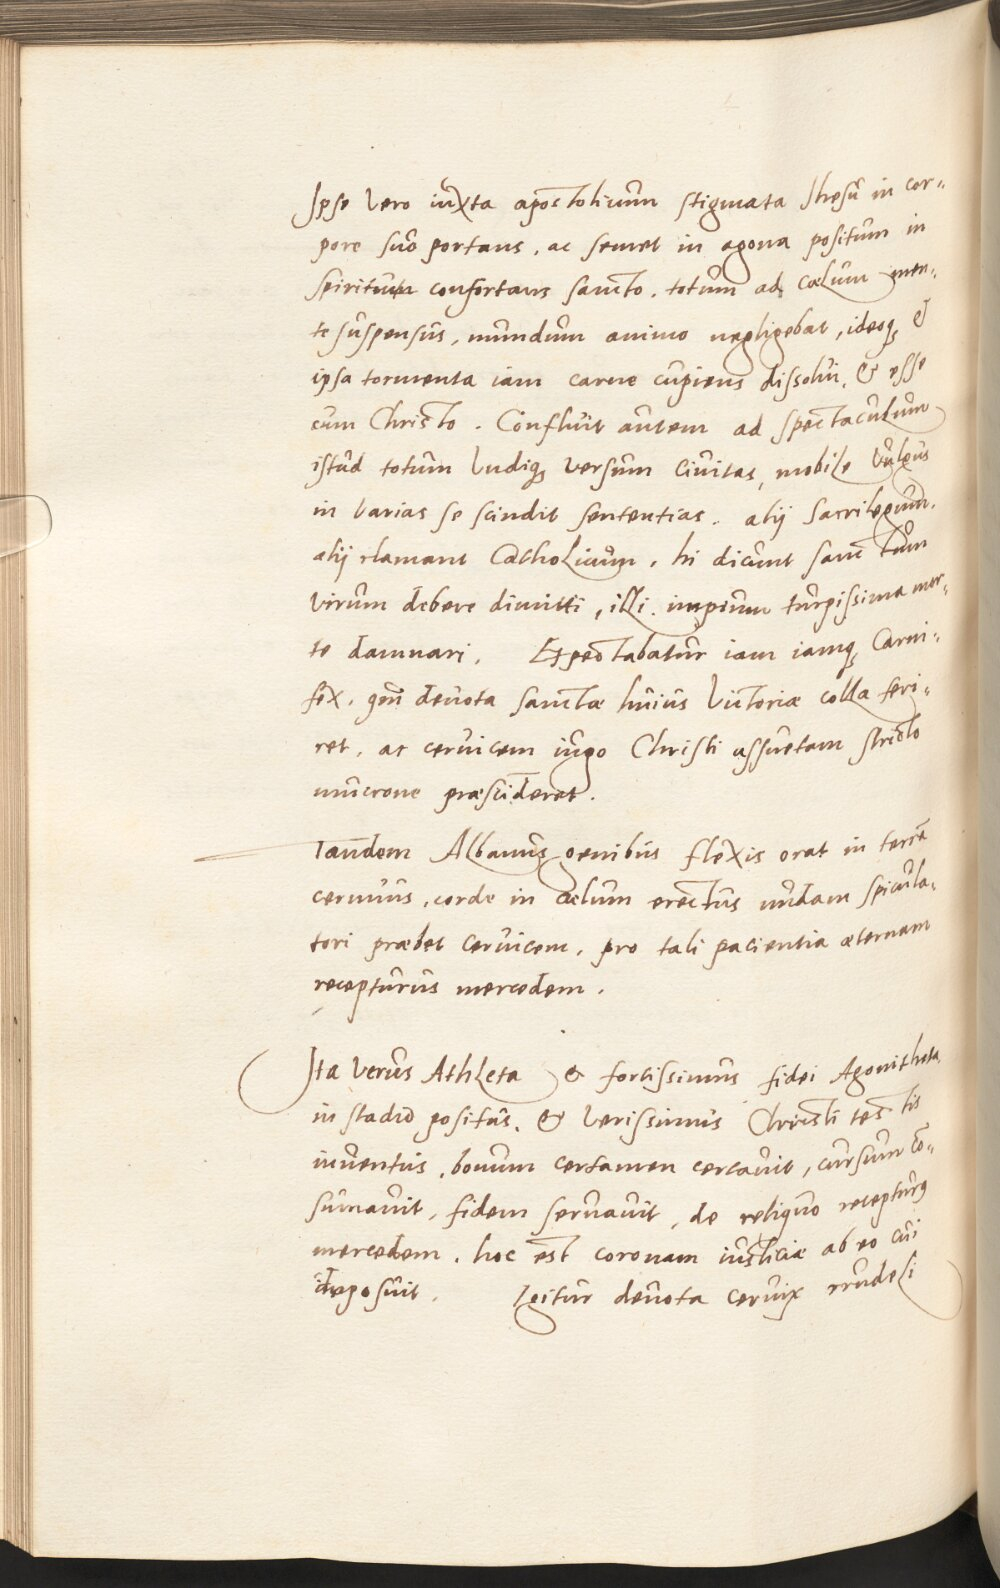 Ipse vero iuxta apostolicum stigmata Jhesu in cor-
pore suo portans, ac semet in agona positum in
spiritum confortans sancto, totum ad cœlum men-
te suspensus, mundum animo negligebat, ideoq; &
ipsa tormenta iam carne cupiens dissolui, & esse
cum Christo. Confluit autem ad spectaculum
istud totum undiq; versum Ciuitas, mobile vulgus
in varias se scindit sententias. alij sacrilegum,
alij clamant Catholicum, hi dicunt sanctum
virum debere dimitti, illi impium turpissima mor-
te damnari. Expectabatur iam iamq; Carni-
fex, devota sanctæ huius Victoriæ colla feri-
ret, ac ceruicem iugo Christi assuetam stricto
mucrone præscideret.
Tandem Albanus genibus flexis orat in terra
cernuus, corde in cælum erectus nudam spicula-
tori præbet ceruicem, pro tali pacientia æternam
recepturus mercedem.
Ita verus Athleta & fortissimus fidei Agonitheta
in stadio positus, & verissimus Christi testis
inuentus, bonum certamen certauit, cursum cō-
sumauit, fidem seruauit, de reliquo recepturus
mercedem, hoc est coronam iusticiæ ab eo cui
Igitur deuota ceruix crudeli